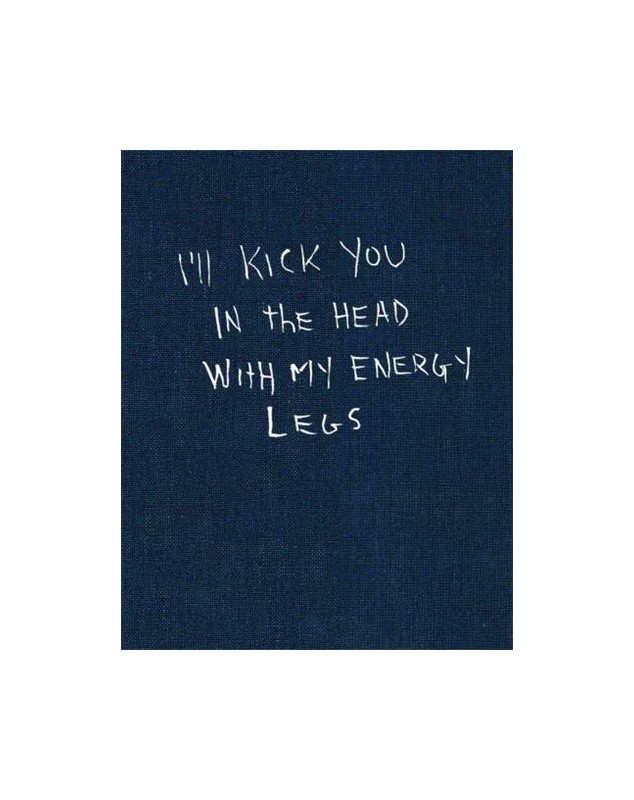 I'll KICK YOU
IN thE HEAD
WItH MY ENERGY
LEGS